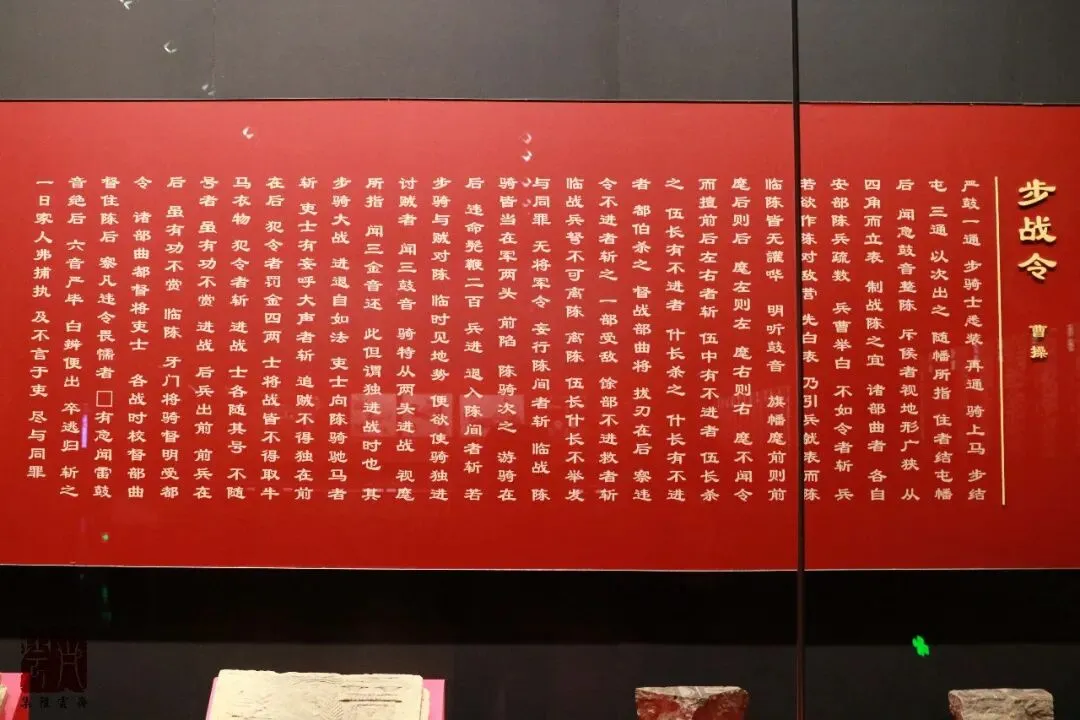 步战令
曹操
严鼓一通 步骑士悉装 再通 骑上马 步结
屯 三通 以次出之 随幡所指 住者结屯幡
后 闻急鼓音整陈 斥侯者视地形广狭 从
四角而立表 制战陈之宜 诸部曲者 各自
安部陈兵疏数 兵曹举白 不如令者斩 兵
若欲作陈对敌营 先白表 乃引兵就表而陈
临陈皆无讙哗 明听鼓音 旗幡麾前则前
麾后则后 麾左则左 麾右则右 麾不闻令
而擅前后左右者斩 伍中有不进者 伍长杀
之 伍长有不进者 什长杀之 什长有不进
者 都伯杀之 督战部曲将 拔刃在后 察违
令不进者斩之 一部受敌 馀部不进救者斩
临战兵弩不可离陈 离陈 伍长什长不举发
与同罪 无将军令 妄行陈间者斩 临战 陈
骑皆当在军两头 前陷 陈骑次之 游骑在
后 违命髡鞭二百 兵进 退入陈间者斩 若
步骑与贼对陈 临时见地势 便欲使骑独进
讨贼者 闻三鼓音 骑特从两头进战 视麾
所指 闻三金音还 此但谓独进战时也 其
步骑大战 进退自如法 吏士向陈骑驰马者
斩 吏士有妄呼大声者斩 追贼不得独在前
在后 犯令者罚金四两 士将战皆不得取牛
马衣物 犯令者斩 进战 士各随其号 不随
号者 虽有功不赏 进战 后兵出前 前兵在
后 虽有功不赏 临陈 牙门将骑督明受都
令 诸部曲都督将吏士 各战时校督部曲
督住陈后 察凡违令畏懦者 □有急闻雷鼓
音绝后 六音严毕 白辨便出 卒逃归 斩之
一日家人弗捕执 及不言于吏 尽与同罪